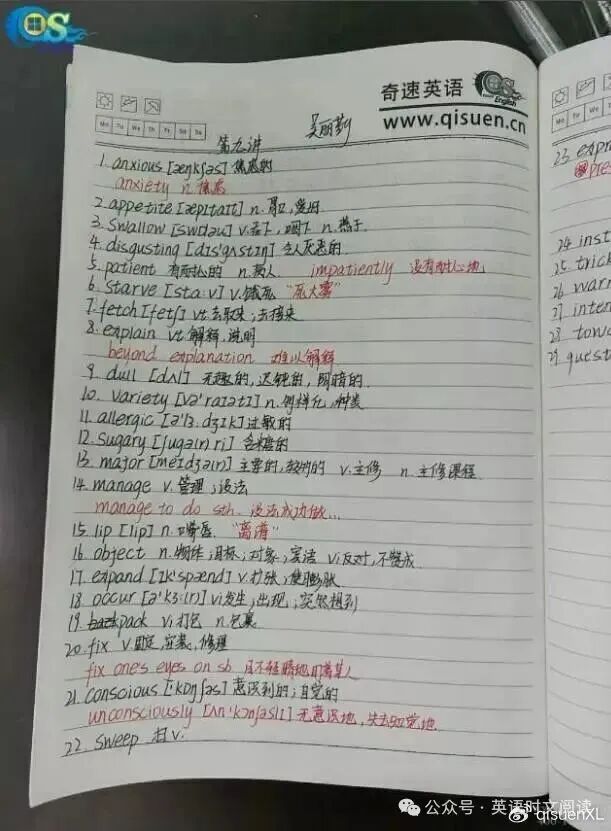 奇速英语
English
www.qisuen.cn
Mo Tu We Th Fr Sa Su
第九讲
吴丽勤
1. anxious [æŋkʃəs] 焦虑的
anxiety n. 焦虑
2. appetite [æpɪtaɪt] n. 胃口,爱好
3. swallow [swɒləu] v.吞下,咽下 n.燕子.
4. disgusting [dɪs'gʌstɪŋ] 令人厌恶的.
5. patient 有耐心的 n.病人. impatiently 没有耐心地
6. starve [sta:v] v.饿死 "死大雾"
7. fetch [fetʃ] vt.去取来;去接来
8. explain vt.解释,说明
beyond explanation 难以解释
9. dull [dʌl] 无趣的,迟钝的,阴暗的.
10. variety [və'raɪətɪ] n.多样化,种类
11. allergic [ə'lɜ.dʒɪk] 过敏的
12. sugary [ʃugə(r) ri] 含糖的
13. major [meɪdʒə(r)] 主要的,较大的 v.主修 n.主修课程.
14. manage v.管理;设法
manage to do sth. 设法成功做...
15. lip [lip] n.嘴唇. "离谱"
16. object n.物体;目标;对象;宾语 vi反对,不赞成.
17. expand [ɪk'spænd] v.扩张;使膨胀
18. occur [ə'kɜ:(r)] vi发生;出现;突然想到
19. pack vi打包 n.包裹
20. fix v.固定,安装,修理
fix one's eyes on sb 目不转睛地盯着某人
21. conscious ['kɒnʃəs] 意识到的;自觉的
unconsciously [ʌn'kɒnʃəslɪ] 无意识地,失去知觉地.
22. sweep 扫 v.
23. expr
pre
24. inst
25. trick
26. warn
27. inten
28. towa
29. quest
公众号·英语时文阅读
@qisuenXL